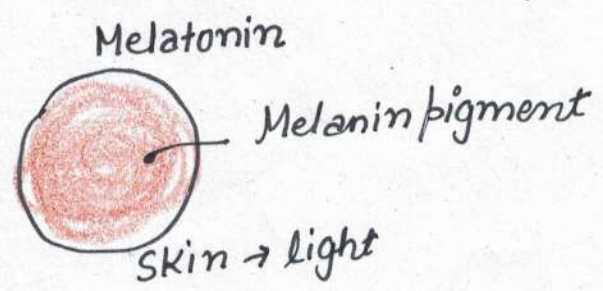 Melatonin
Melanin pigment
Skin → light